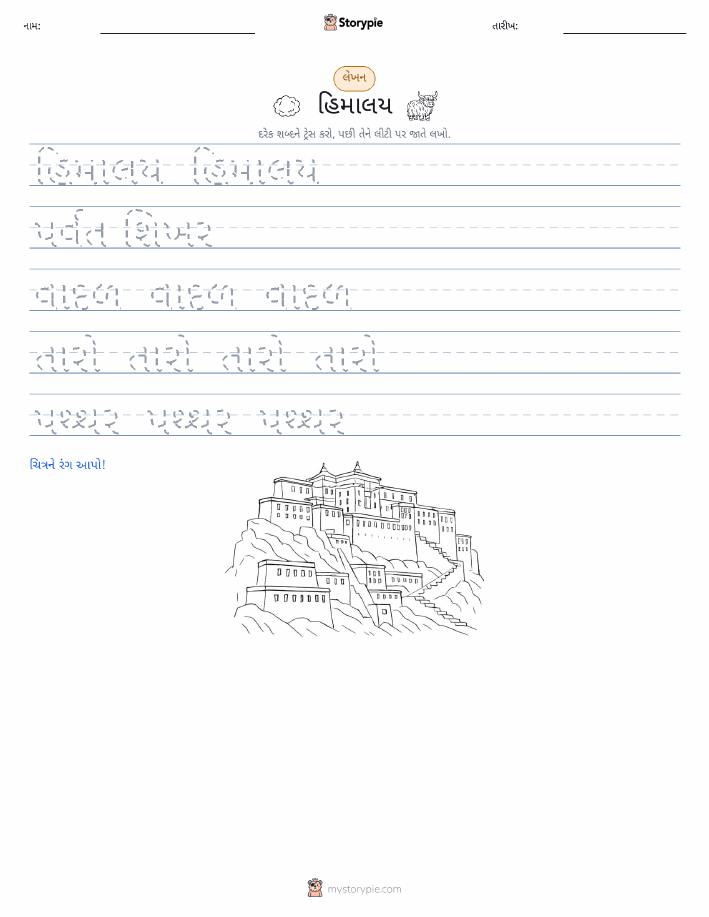 નામ:
Storypie
તારીખ:
લેખન
હિમાલય
દરેક શબ્દને ટ્રેસ કરો, પછી તેને લીટી પર જાતે લખો.
હિમાલય હિમાલય
પર્વત શિખર
વાદળ વાદળ વાદળ
તારો તારો તારો તારો
પથ્થર પથ્થર પથ્થર
ચિત્રને રંગ આપો!
mystorypie.com